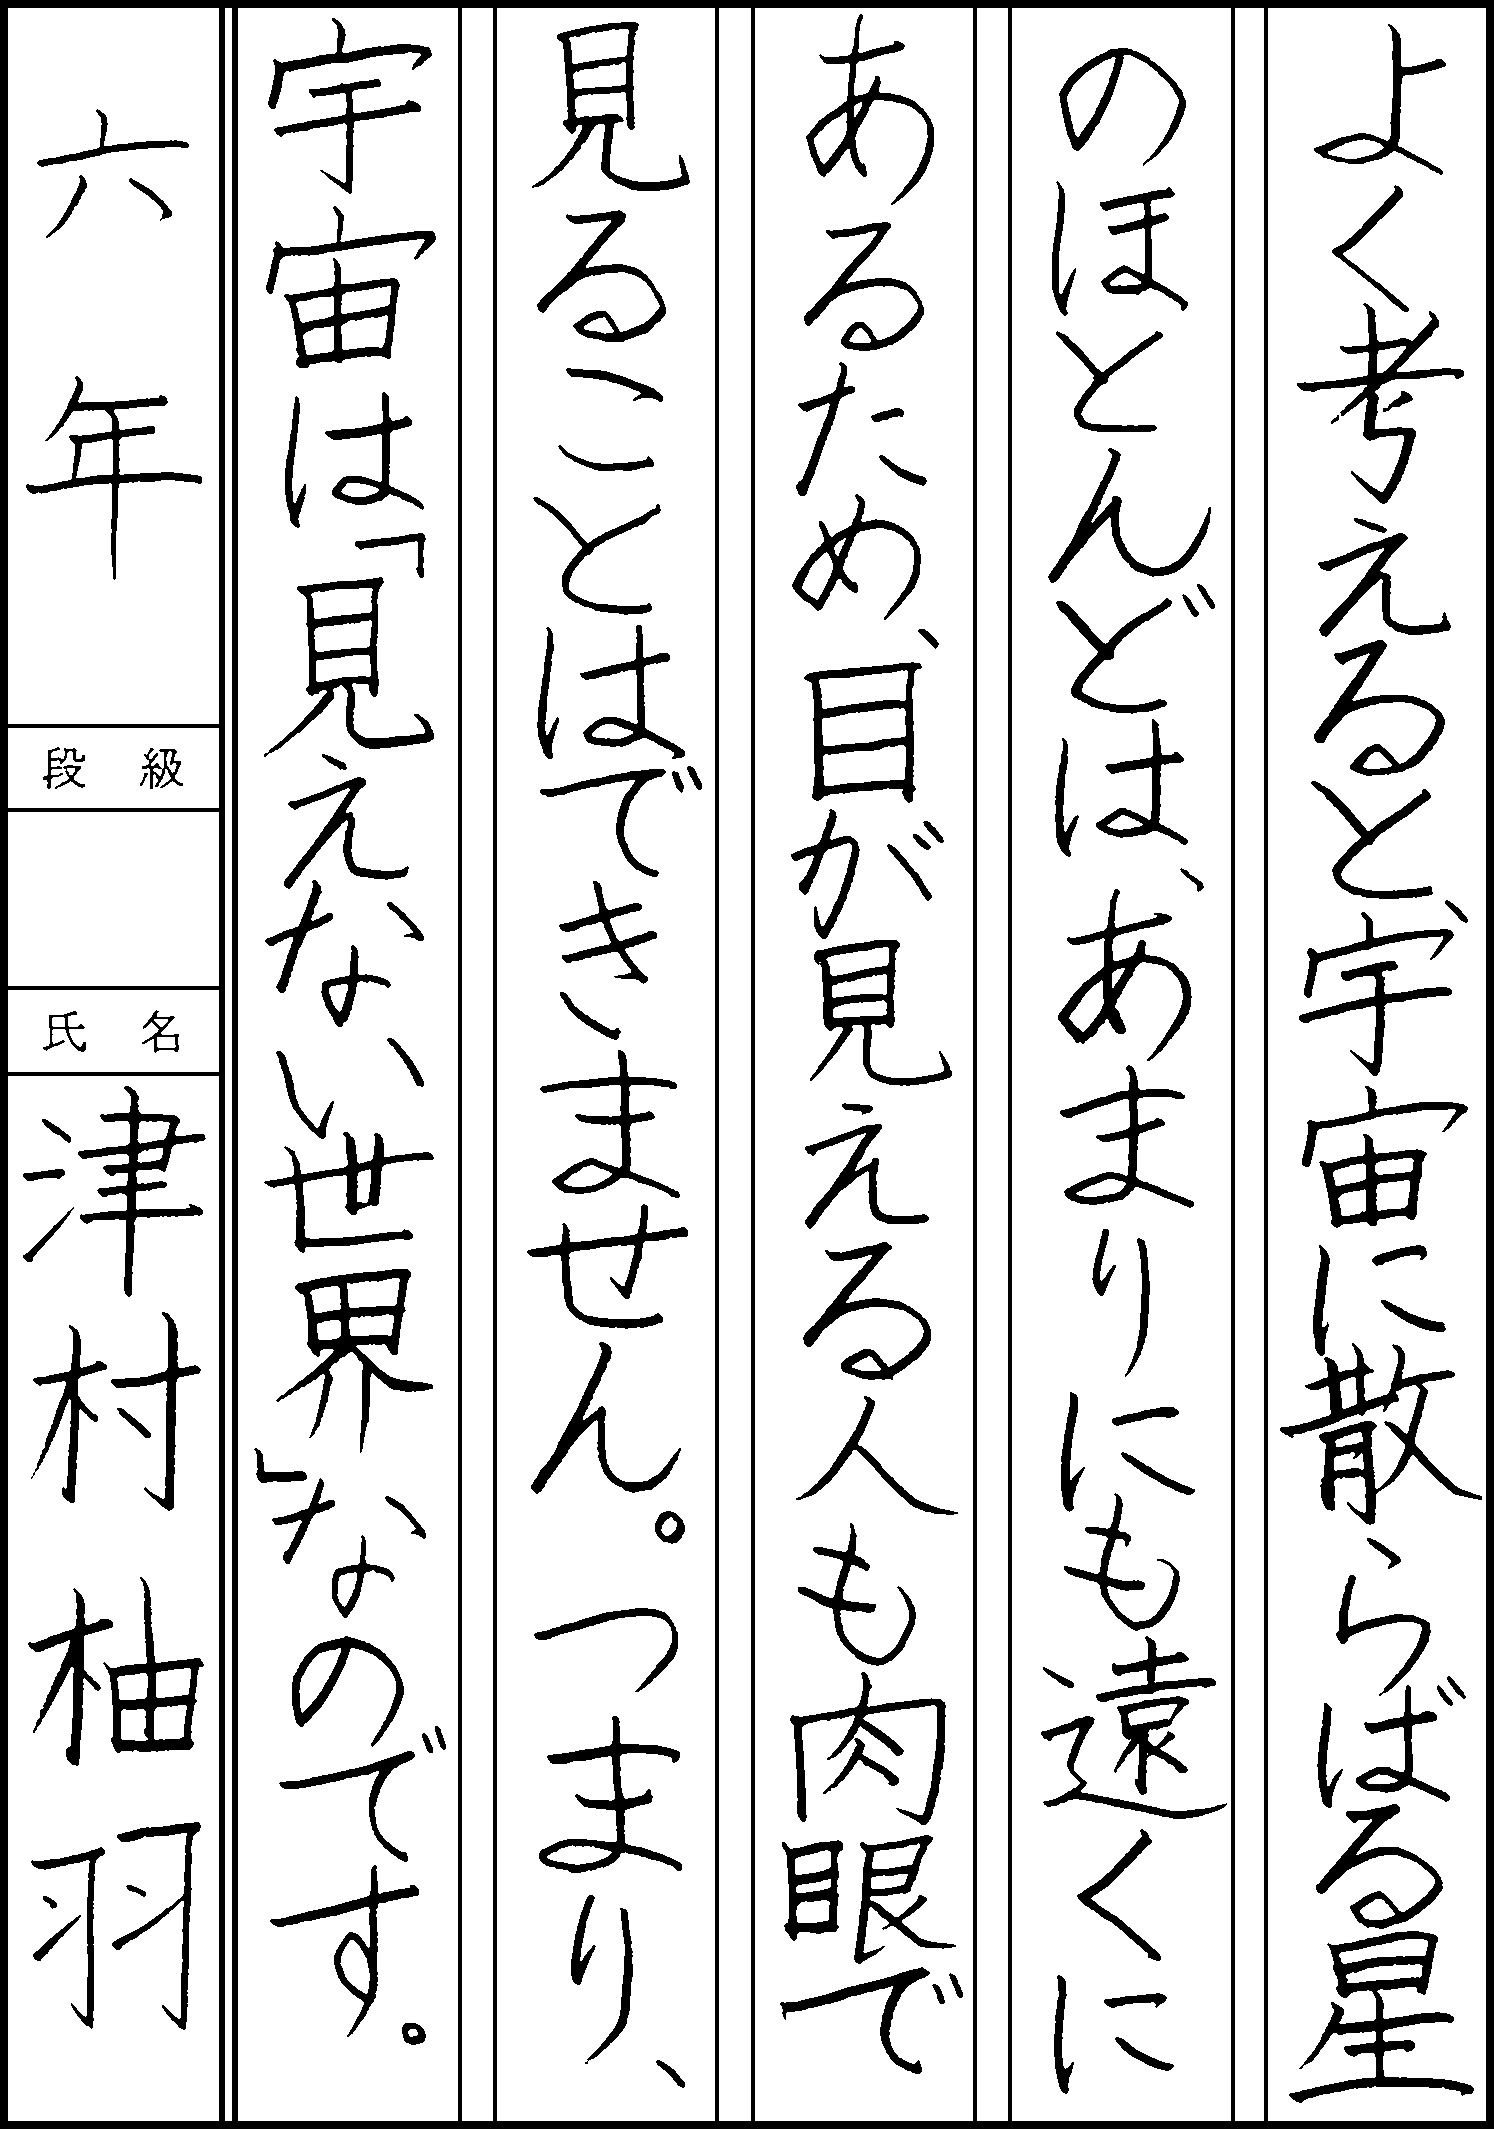 よく考えると、宇宙に散らばる星
のほとんどは、あまりにも遠くに
あるため、目が見える人も肉眼で
見ることはできません。つまり、
宇宙は「見えない世界」なのです。
六年
段級
氏名
津村柚羽